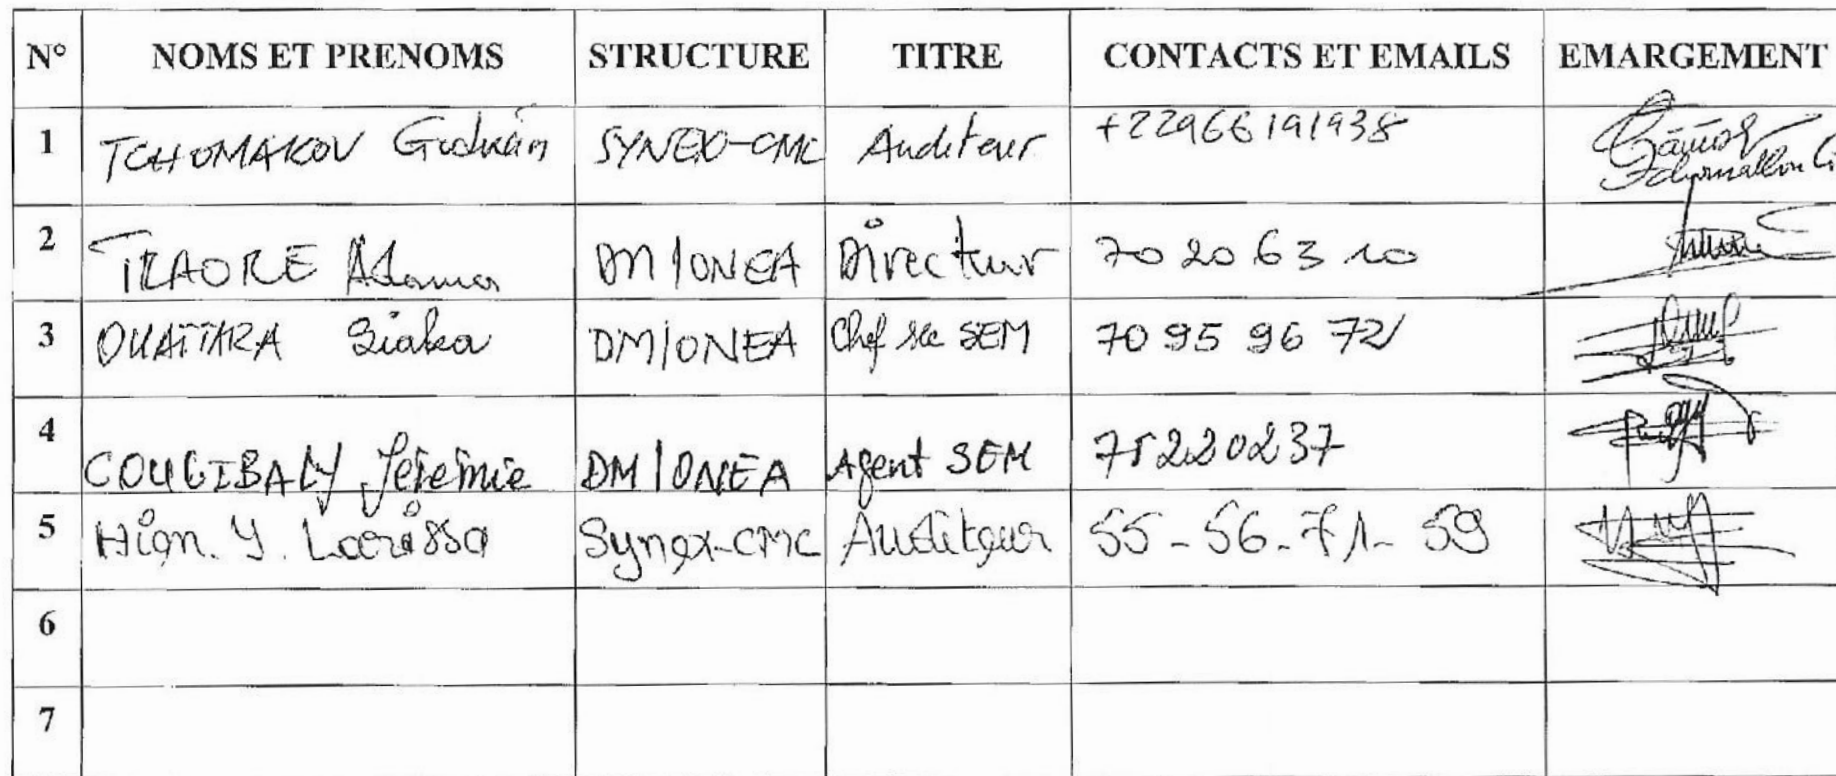 N° NOMS ET PRENOMS STRUCTURE TITRE CONTACTS ET EMAILS EMARGEMENT
1 TCHOMAKOV SYNEX-CMC Auditeur +22966191938
2 TRAORE Adama DM/ONEA Directeur 70 20 63 10
3 OUATTARA Siaka DM/ONEA Chef sce SEM 70 95 96 72
4 COULIBALY Jérémie DM/ONEA Agent SEM 75220237
5 Hien. Y. Larissa Synex-CMC Auditeur 55-56-71-59
6
7